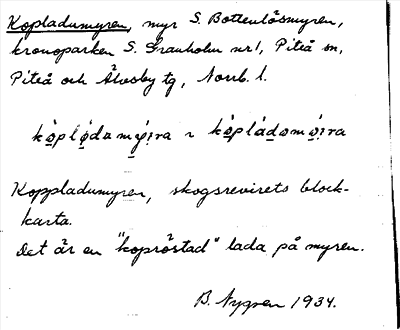 Kopladumyren, myr S. Bottenlösmyren,
kronoparken S. Granholm nr 1, Piteå sn,
Piteå och Älvsby tg, Norrb. l.
Koppladumyren, skogsrevirets block-
karta.
Det är en "kopröstad" lada på myren.
B. Nygren 1934.